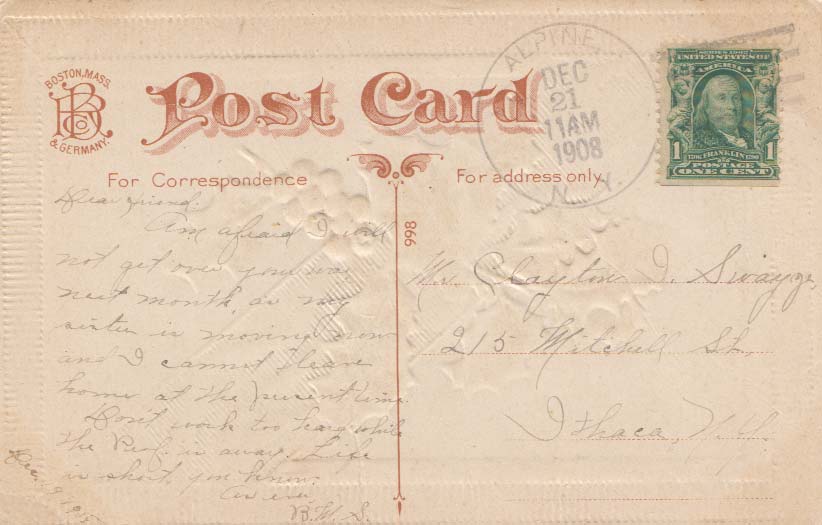 BOSTON, MASS.
BRCo
& GERMANY.
Post Card
ALPINE,
DEC
21
11AM
1908
N. Y.
SERIES 1902
UNITED STATES OF
AMERICA
1 1790 FRANKLIN 1790 1
POSTAGE
ONE CENT
For Correspondence
For address only.
998
Dear friend.
Am afraid I will
not get over your way
next month, as my
sister is moving now
and I cannot leave
home at the present time.
Don't work too hard while
the Prof. is away. Life
is short, you know.
As ever
B. W. S.
Dec. 19, 1908
Mr. Clayton I. Swayze,
215 Mitchell St.,
Ithaca, N.Y.